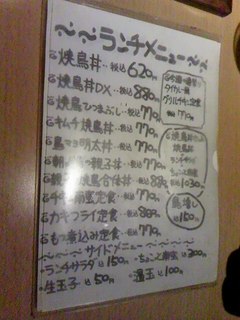 ～～ランチメニュー～～
焼鳥丼‥税込620円
焼鳥丼DX‥税込880円
焼鳥ひつまぶし‥税込770円
キムチ焼鳥丼‥税込770円
鳥マヨ明太丼 税込770円
親子丼 税込770円
焼鳥合体丼 880円
チキン南蛮定食 税込770円
カキフライ定食‥税込880円
もつ煮込み定食 税込770円
～～サイドメニュー～～
・ランチサラダ 税込150円
・ちょこっと南蛮 税込300円
・生玉子 税込50円
・温玉 税込100円
今週の
定食
税込770円
焼鳥丼
税込1030円
鳥増し
税込150円